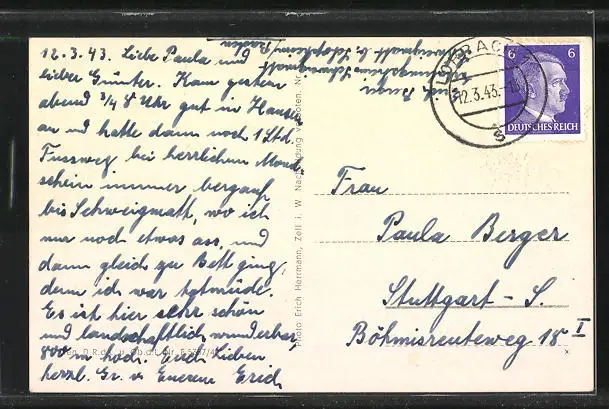 12. 3. 43. Liebe Paula und
lieber Günter. Kam gestern
abend 3/4 8 Uhr gut in Hausen
an und hatte dann noch 1 Std.
Fussweg bei herrlichem Mond-
schein immer bergauf
bis Schweigmatt, wo ich
nur noch etwas ass, und
dann gleich zu Bett ging,
denn ich war totmüde.
Es ist hier sehr schön
und landschaftlich wunderbar,
800 m hoch. Euch lieben
herzl. Gr. v. Eurem Erich
Schweigmatt b. Schopfheim/Baden
Photo Erich Herrmann, Zell i. W. Nachbildung verboten. Nr.
12.3.43.
6 6
DEUTSCHES REICH
Frau
Paula Berger
Stuttgart-S.
Böhmisreuteweg 18 I